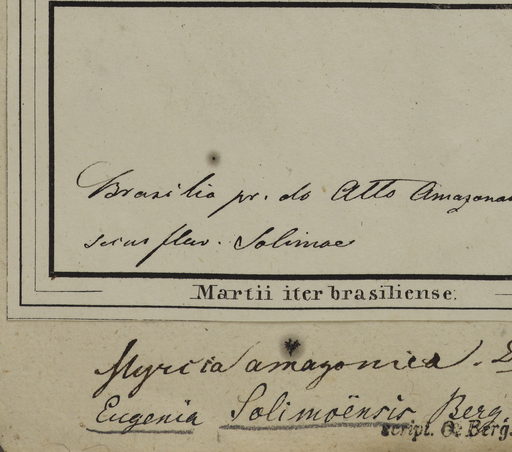 Brasilia pr. do Alto Amazonas
secus fluv. Solimoes
Martii iter brasiliense.
Myrcia amazonica. D
Eugenia Solimoënsis Berg.
script. O. Berg.